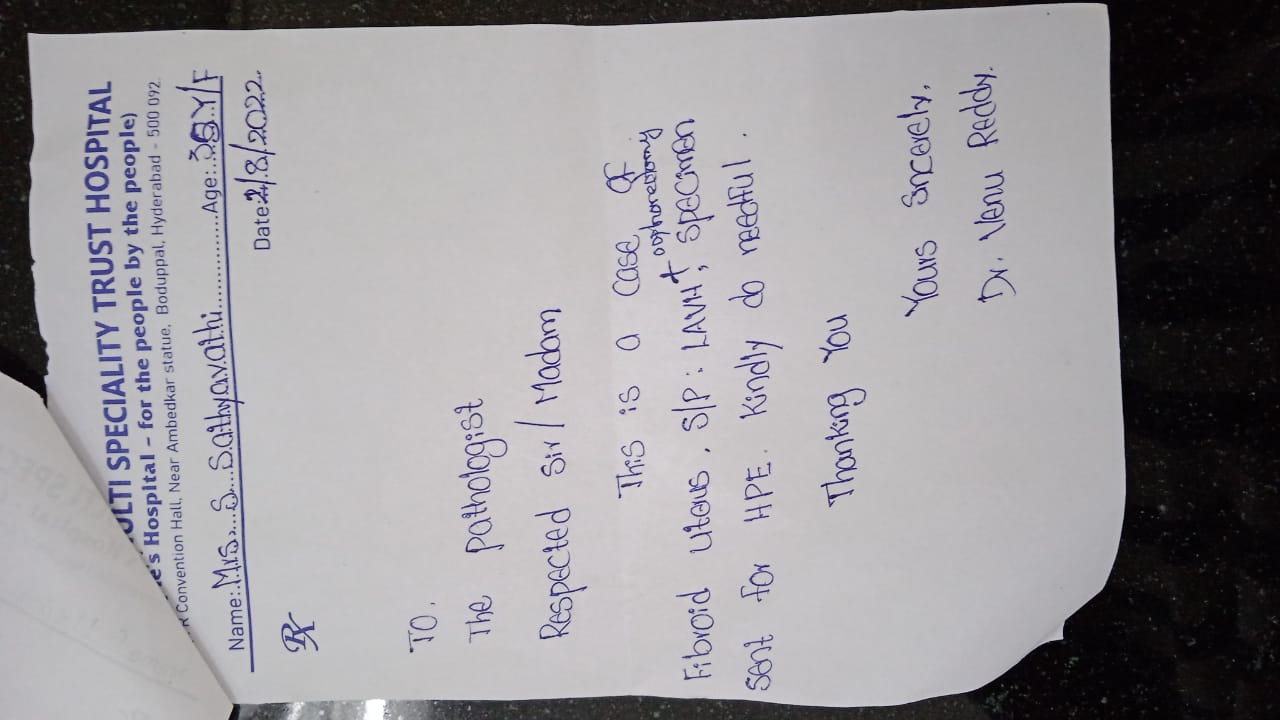 ULTI SPECIALITY TRUST HOSPITAL
e's Hospital - for the people by the people)
Convention Hall, Near Ambedkar statue, Boduppal, Hyderabad - 500 092.
Name: Mrs. S. Sathyavathi Age: Y/F
Date: 2/8/2022
Rx
TO,
The pathologist
Respected Sir/ Madam
This is a case of
Fibroid uterus. S/P: LAVH + oophorectomy, specimen
sent for HPE. Kindly do needful.
Thanking You
Yours Sincerely,
Dr. Venu Reddy.